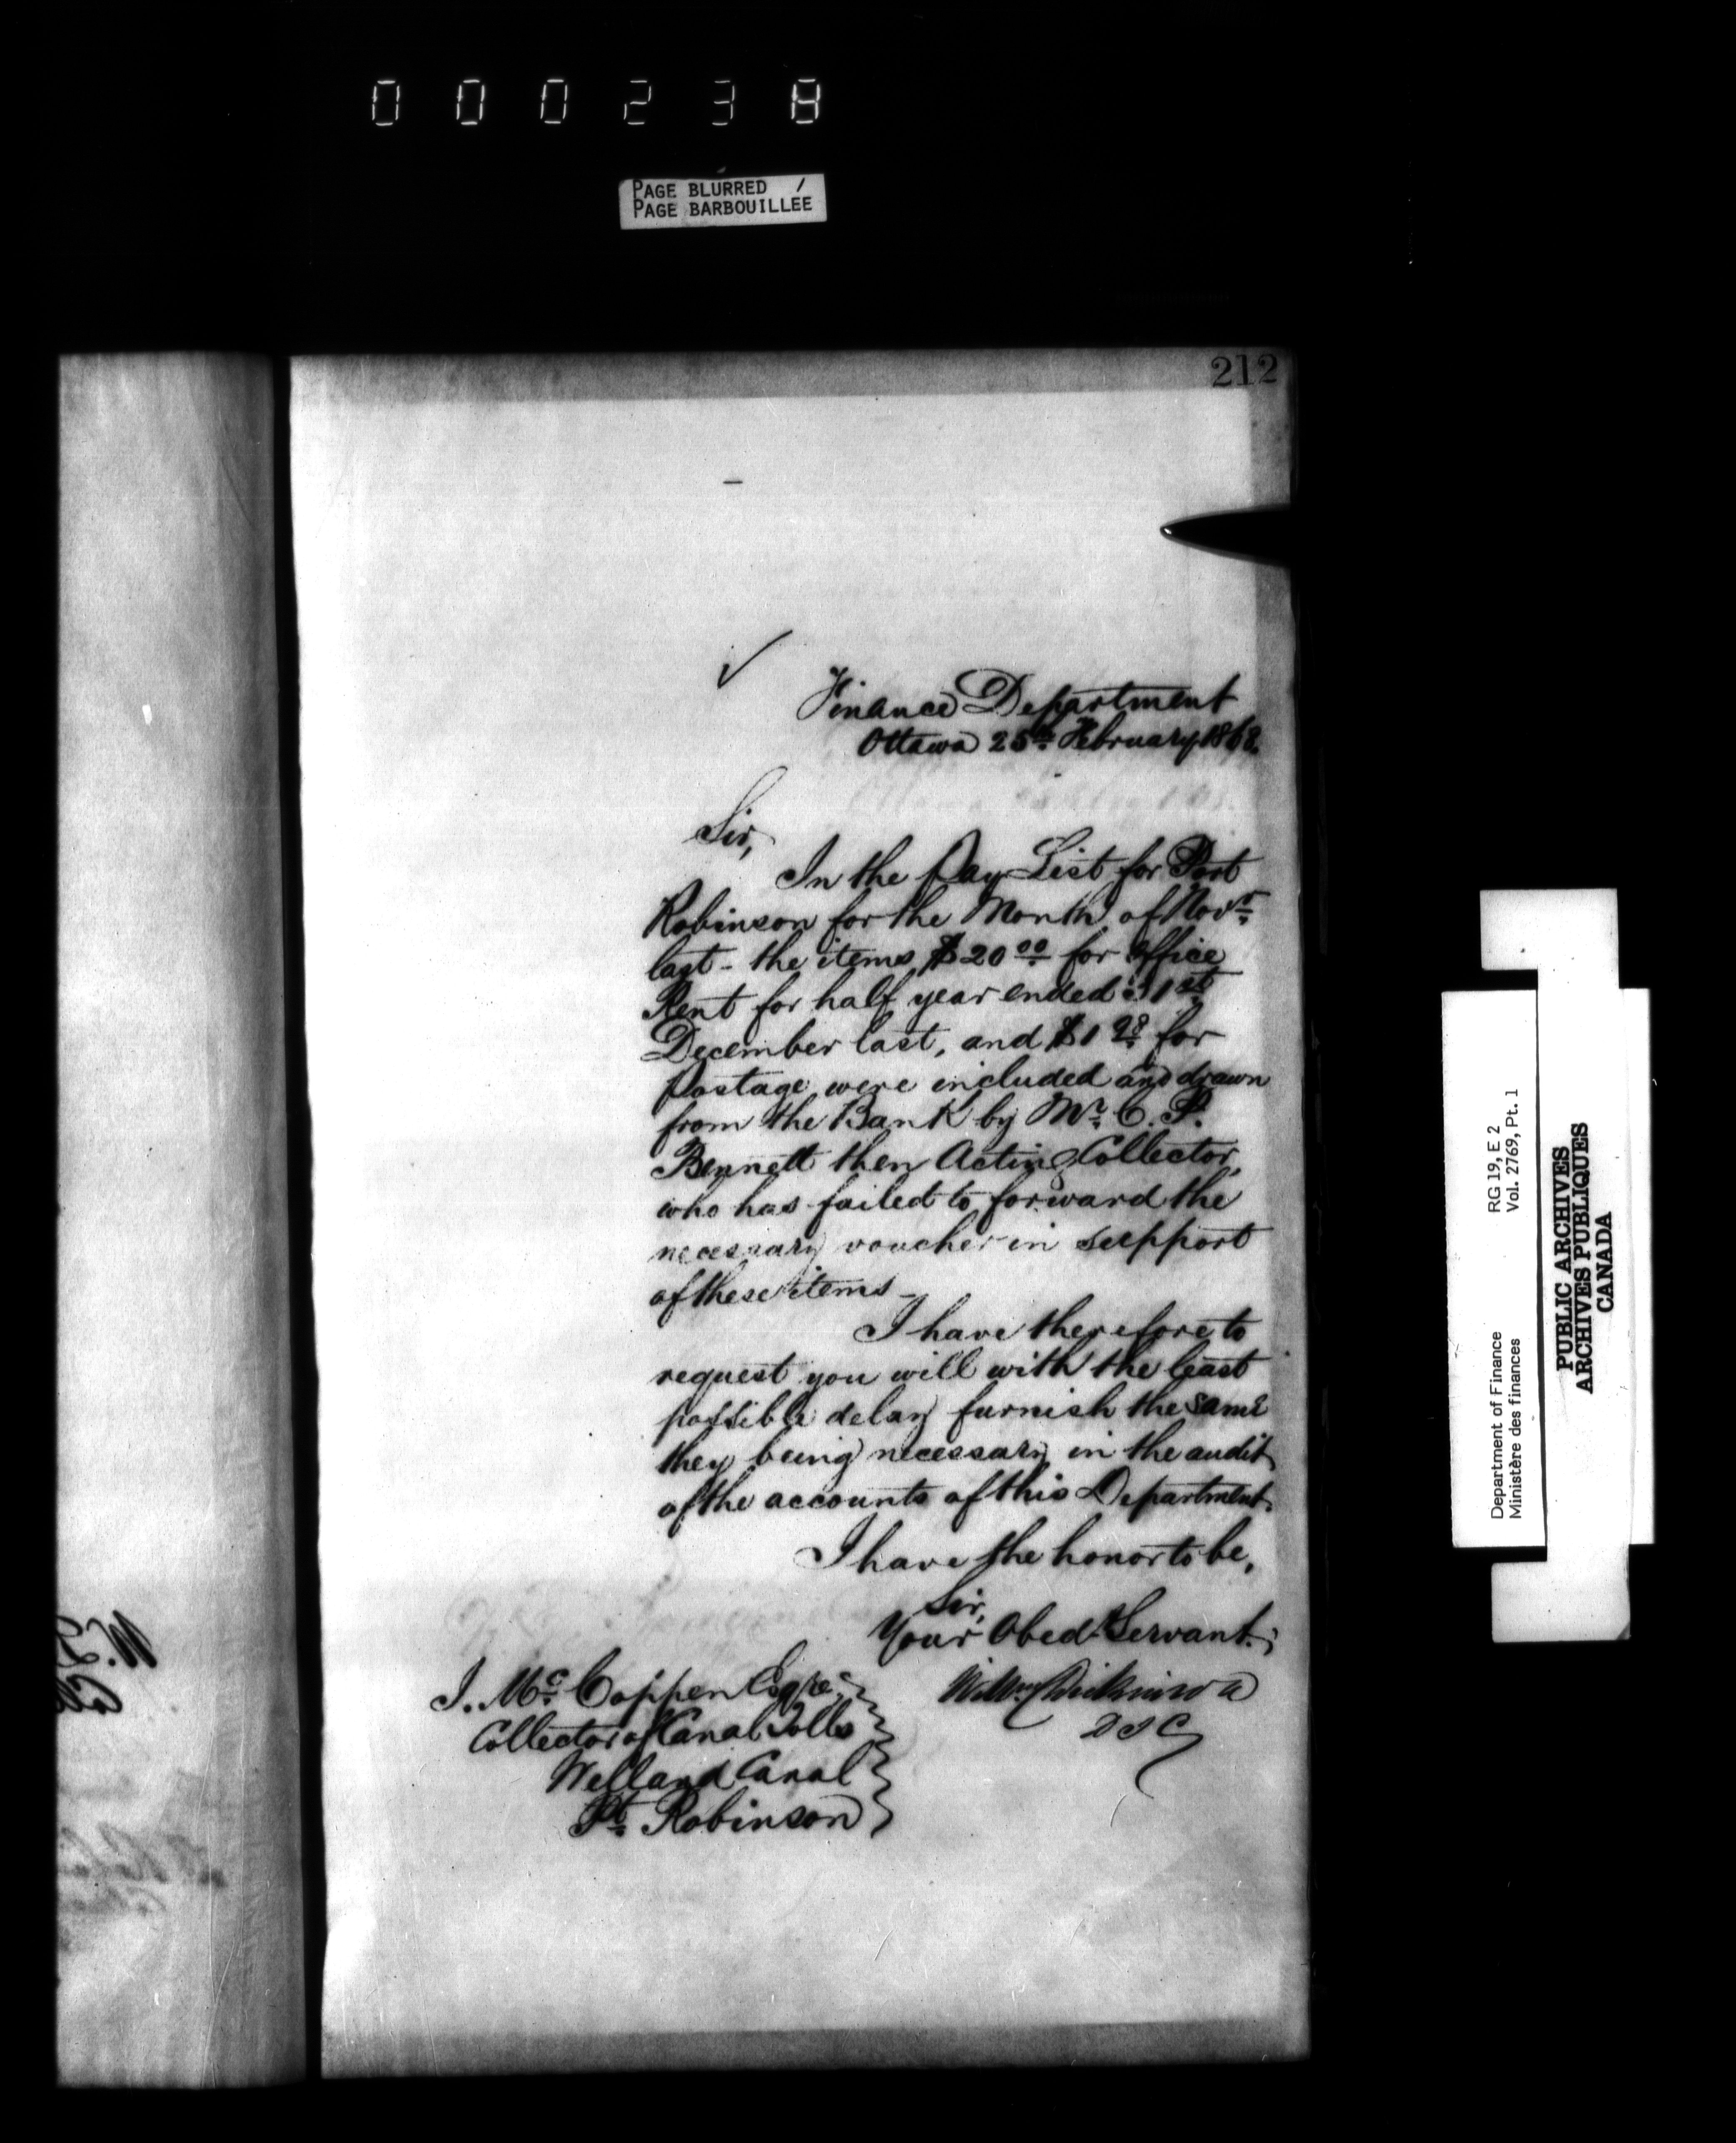 000238
PAGE BLURRED /
PAGE BARBOUILLÉE
212
Finance Department
Ottawa 25th February 1868.
Sir,
In the Pay List for Port
Robinson for the Month of Novr
last - the items $20 00 for Office
Rent for half year ended 31st
December last, and $1 98 for
postage were included and drawn
from the Bank by Mr. C. P.
Bennett then Acting Collector,
who has failed to forward the
necessary voucher in support
of these items -
I have therefore to
request you will with the least
possible delay furnish the same
they being necessary in the audit
of the accounts of this Department.
I have the honor to be,
Sir,
Your Obed Servant.
Wm Dickinson
D I G
J. Mc Coppen Esqre
Collector of Canal Tolls
Welland Canal
Pt Robinson
Department of Finance RG 19, E 2
Ministère des finances Vol. 2769, Pt. 1
PUBLIC ARCHIVES
ARCHIVES PUBLIQUES
CANADA